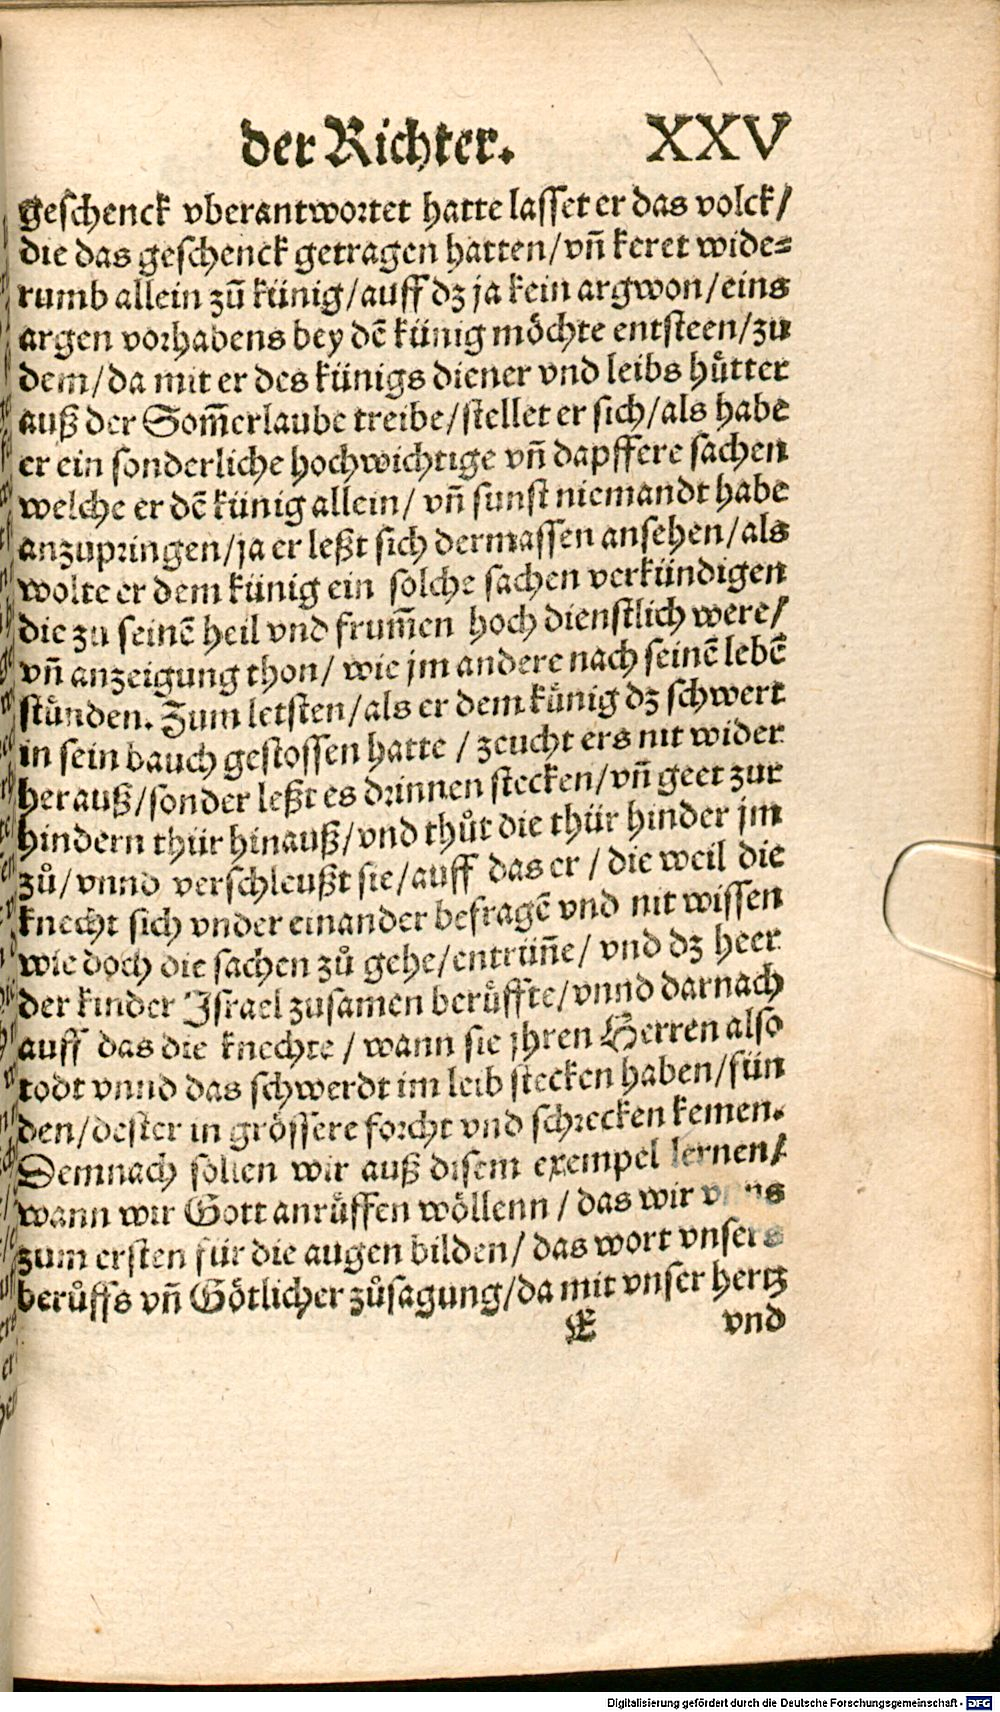 der Richter. XXV
geschenck vberantwortet hatte lasset er das volck/
die das geschenck getragen hatten/vñ keret wide=
rumb allein zũ künig/auff dz ja kein argwon/eins
argen vorhabens bey dẽ künig möchte entsteen/zu
dem/da mit er des künigs diener vnd leibs hütter
auß der Som̃erlaube treibe/stellet er sich/als habe
er ein sonderliche hochwichtige vñ dapffere sachen
welche er dẽ künig allein/ vñ sunst niemandt habe
anzupringen/ja er leßt sich dermassen ansehen/als
wolte er dem künig ein solche sachen verkündigen
die zu seinẽ heil vnd frum̃en hoch dienstlich were/
vñ anzeigung thon/ wie jm andere nach seinẽ lebẽ
stünden. Zum letsten/als er dem künig dz schwert
in sein bauch gestossen hatte / zeucht ers nit wider
herauß/sonder leßt es drinnen stecken/vñ geet zur
hindern thür hinauß/vnd thůt die thür hinder jm
zů/vnnd verschleußt sie/auff das er / die weil die
knecht sich vnder einander befragẽ vnd nit wissen
wie doch die sachen zů gehe/entrüñe/ vnd dz heer
der kinder Jsrael zusamen berůffte/vnnd darnach
auff das die knechte / wann sie jhren Herren also
todt vnnd das schwerdt im leib stecken haben/fün
den/dester in grössere forcht vnd schrecken kemen.
Demnach sollen wir auß disem exempel lernen/
wann wir Gott anrůffen wöllenn / das wir vnns
zum ersten für die augen bilden/ das wort vnsers
berůffs vñ Götlicher zůsagung/da mit vnser hertz
E vnd
Digitalisierung gefördert durch die Deutsche Forschungsgemeinschaft - DFG